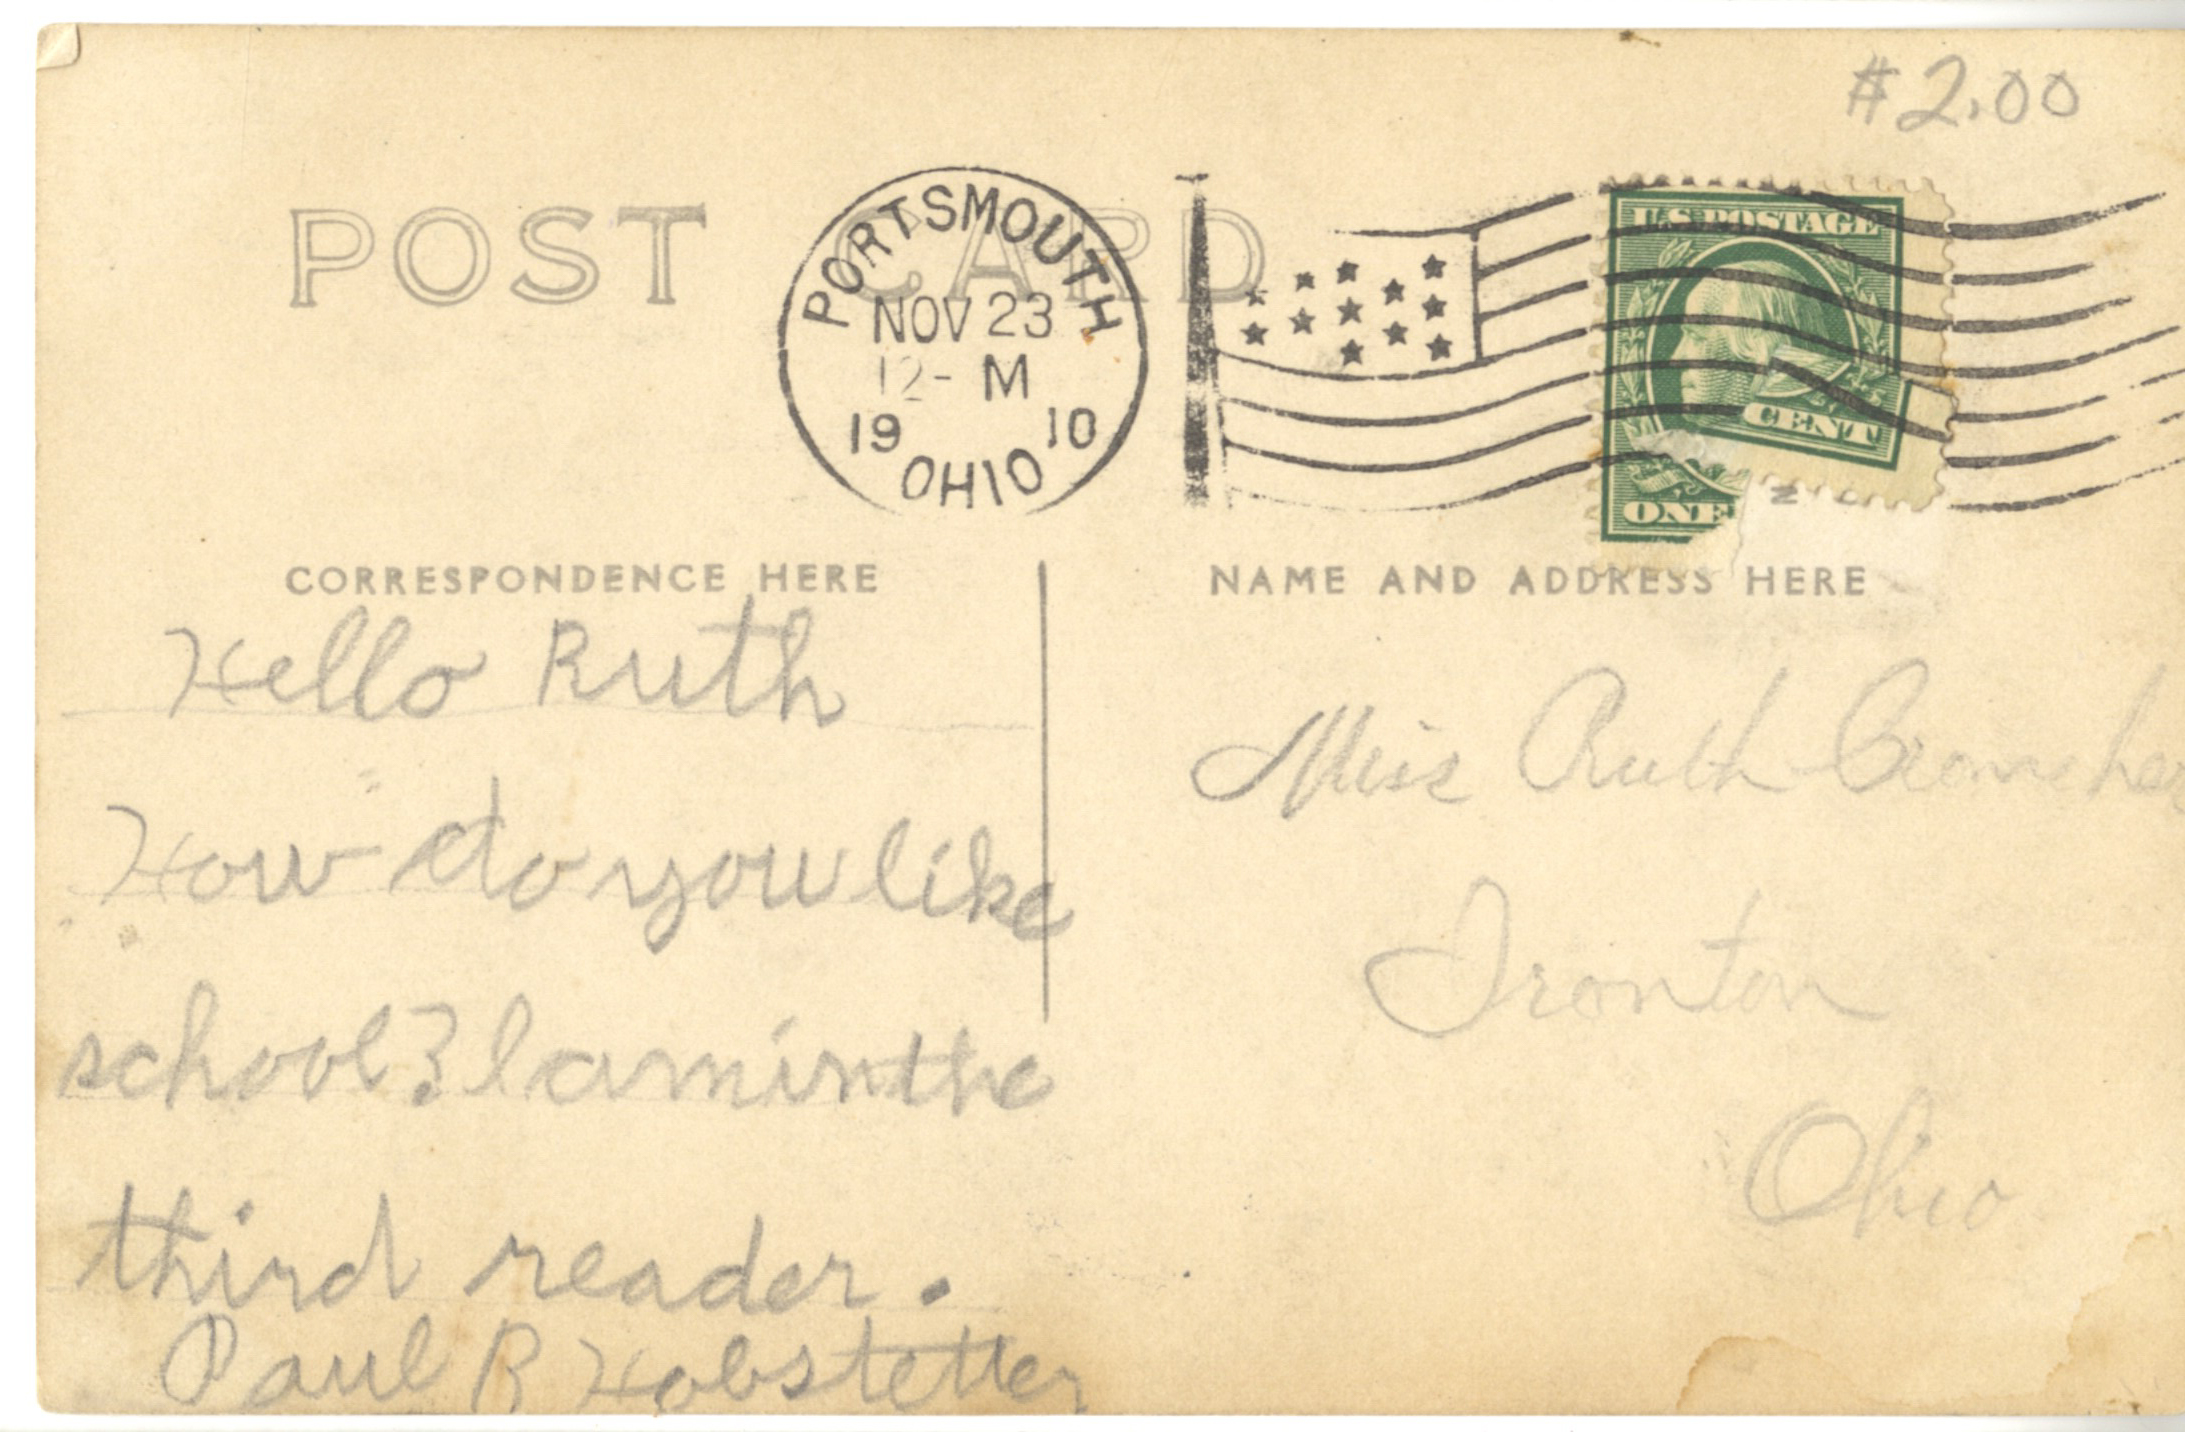 #2.00
POST CARD
PORTSMOUTH
NOV 23
12- M
19 10
OHIO
U.S. POSTAGE
CENT
ONE
CORRESPONDENCE HERE
Hello Ruth
How do you like
school? I am in the
third reader.
Paul R Hobstetter
NAME AND ADDRESS HERE
Miss Ruth
Ironton
Ohio